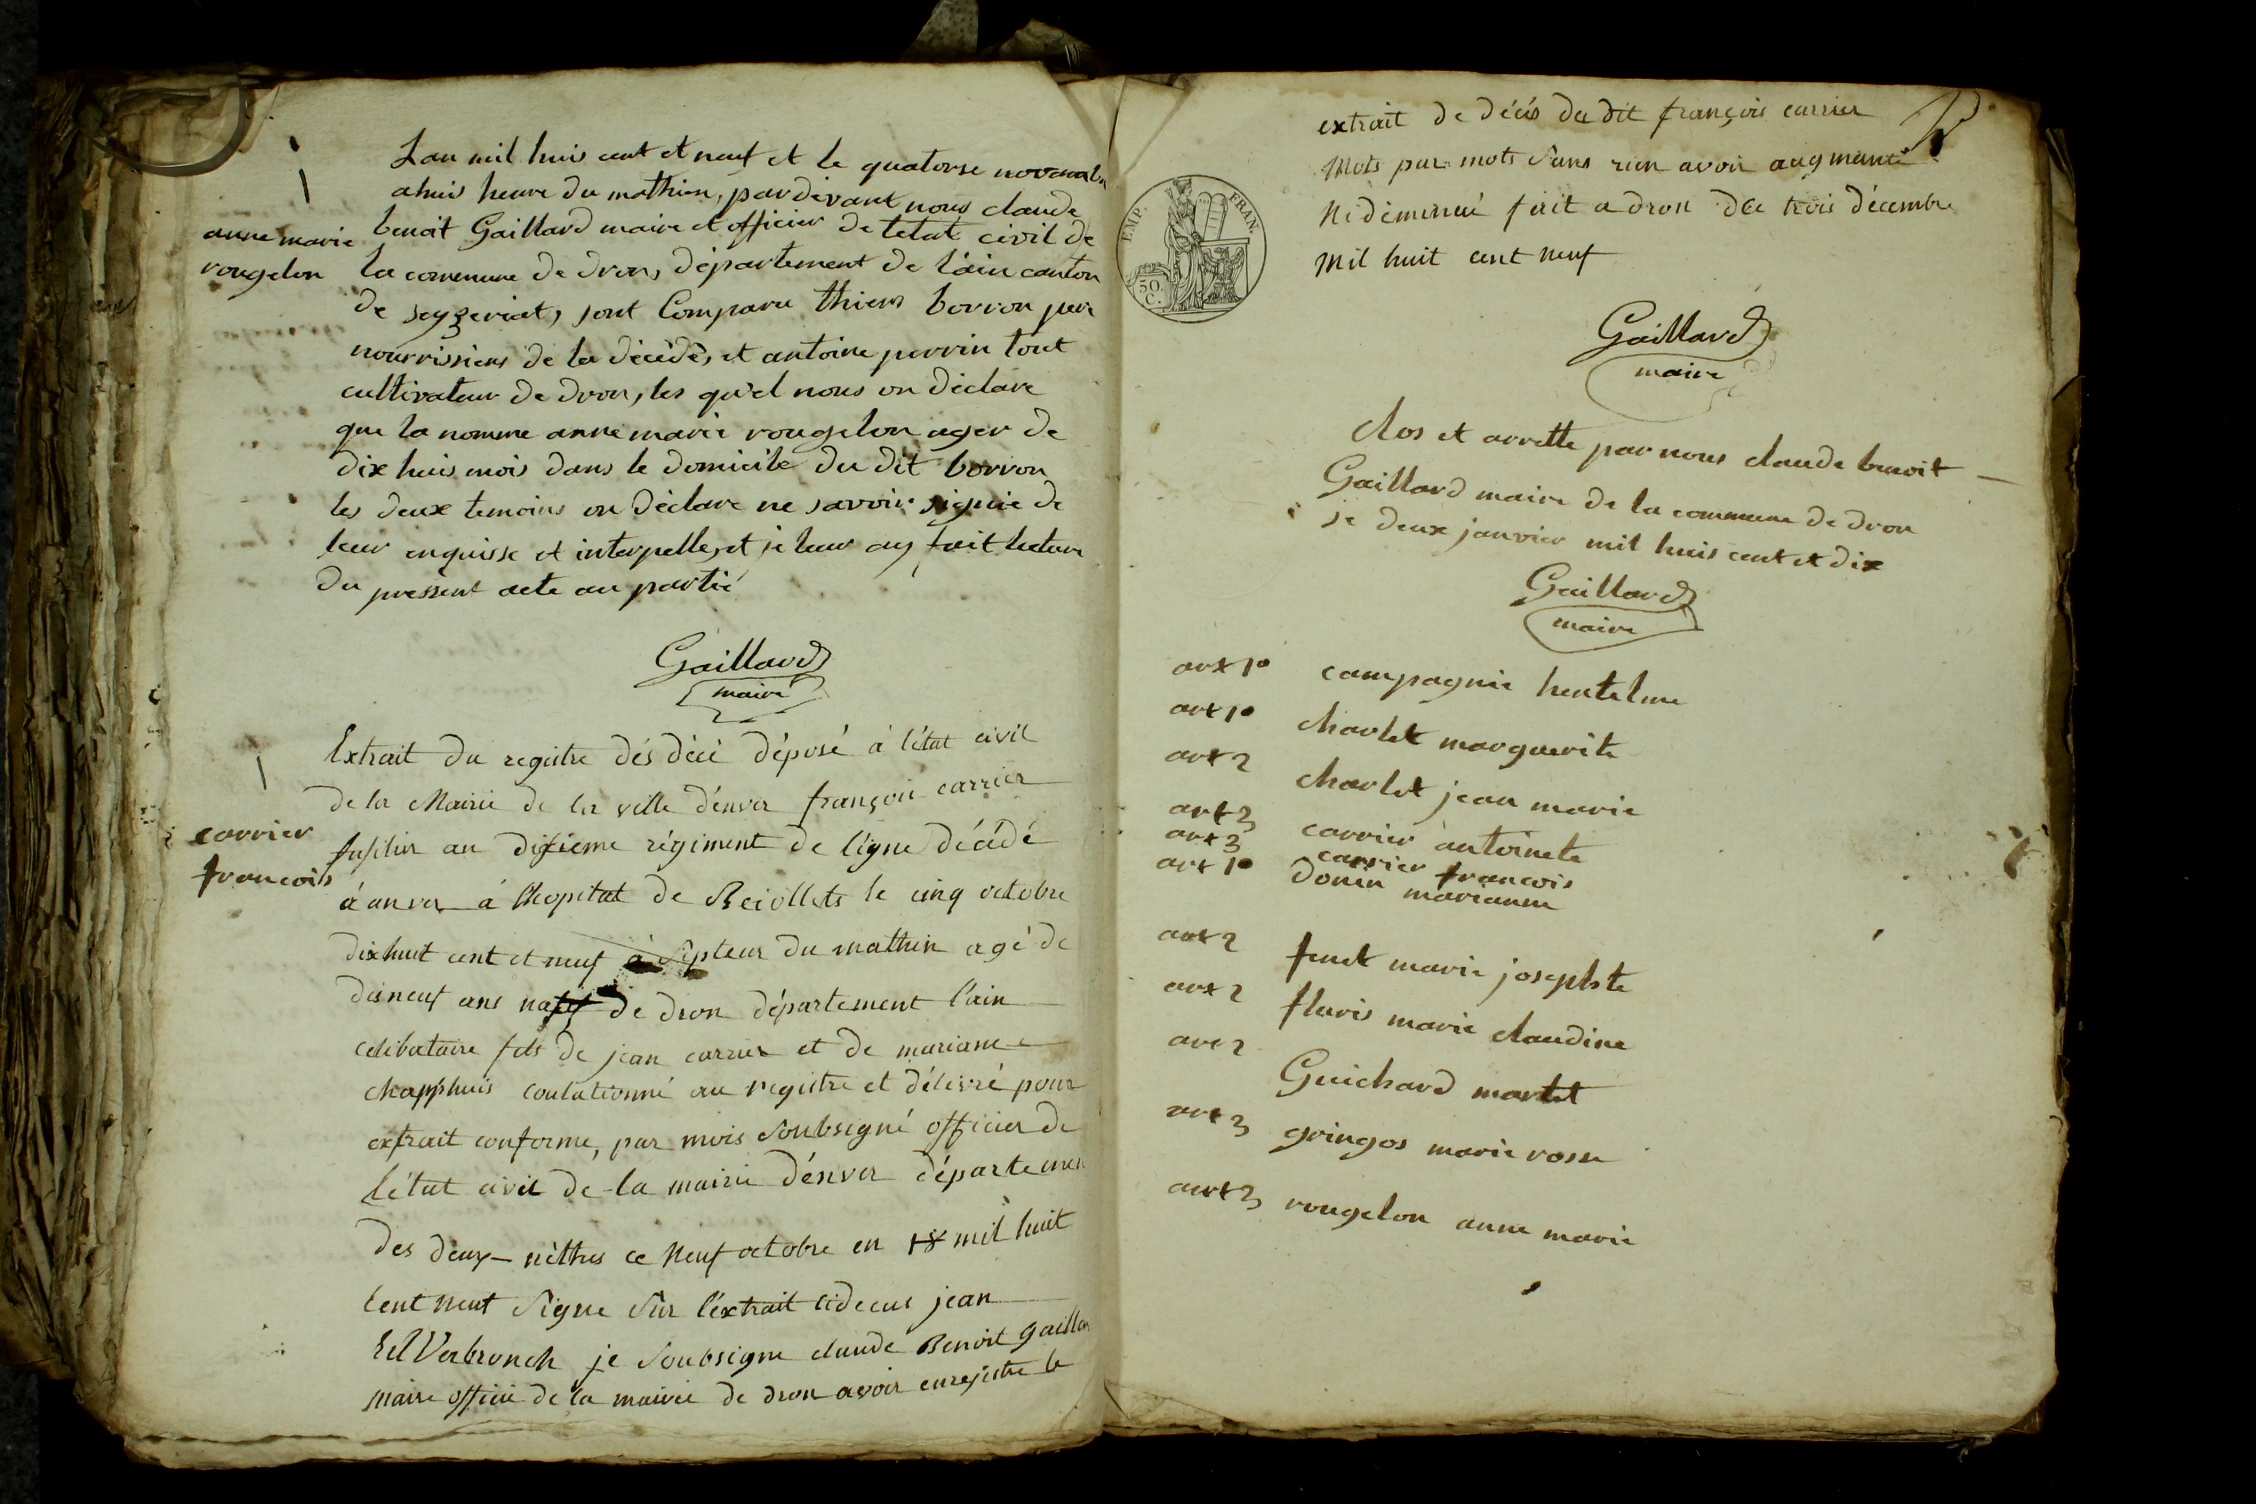 Lan mil huis cent et neuf et le quatorse novemb
ahuis heure du mathin, pardevant nous claude
benoit Gaillard maire et officier de letat civil de
anne marie
rougelon
la commune de dron, département de l'ain canton
de seyzeriat, sont Comparu thiens borron pere
nourrissiens de la décédé, et antoine perrin tout
cultivateur de dron, les qu'el nous on déclare
que la nomme anne marie rougelon ager de
dix huis mois dans le domicile du dit borron
les deux temoins on déclare ne savoir signie de
leur enquisse et interpelle, et je leur ay fait lecture
du pressent acte au partié
Gaillard
maire
Extrait du registre dés décé déposé à l'état civil
de la Mairie de la ville d'enver françois carrier
carrier
francois
fusilier au dixieme régiment de ligne décédé
à anver à l'hopital de Reiollets le cinq octobre
dixhuit cent et neuf à septeur du mathin agé de
disneuf ans natif de dron département l'ain
celibataire fils de jean carrier et de mariane
chapphuis coulationné au registre et délivré pour
extrait conforme, par mois soubsigné officier de
l'état civil de la mairie d'énver départemen
des deux nèthes ce Neuf octobre en 18 mil huit
cent neuf signe sur l'extrait cidecus jean
Verbronck je soubsigne claude Benoit gaillar
maire officié de la mairie de dron avoir enrejistre le
extrait de décés du dit françois carrier
Mots par mots sans rien avoir augmanté
Ni déminué fait a dron de trois décembre
mil huit cent neuf
EMP. FRAN.
50.
C.
Gaillard
maire
clos et arrette par nous claude benoit
Gaillard maire de la commune de dron
se deux janvier mil huis cent et dix
Gaillard
maire
art 1º campagnie
art 1º charlet marguerite
art 2 charlet jean marie
art 3 carrier antoinete
art 3 carrier francois
art 1º donin marianne
art 2 fenet marie josephte
art 2 fluris marie claudine
art 2 Guichard
art 3 gringos marie rosse
art 3 rougelon anne marie